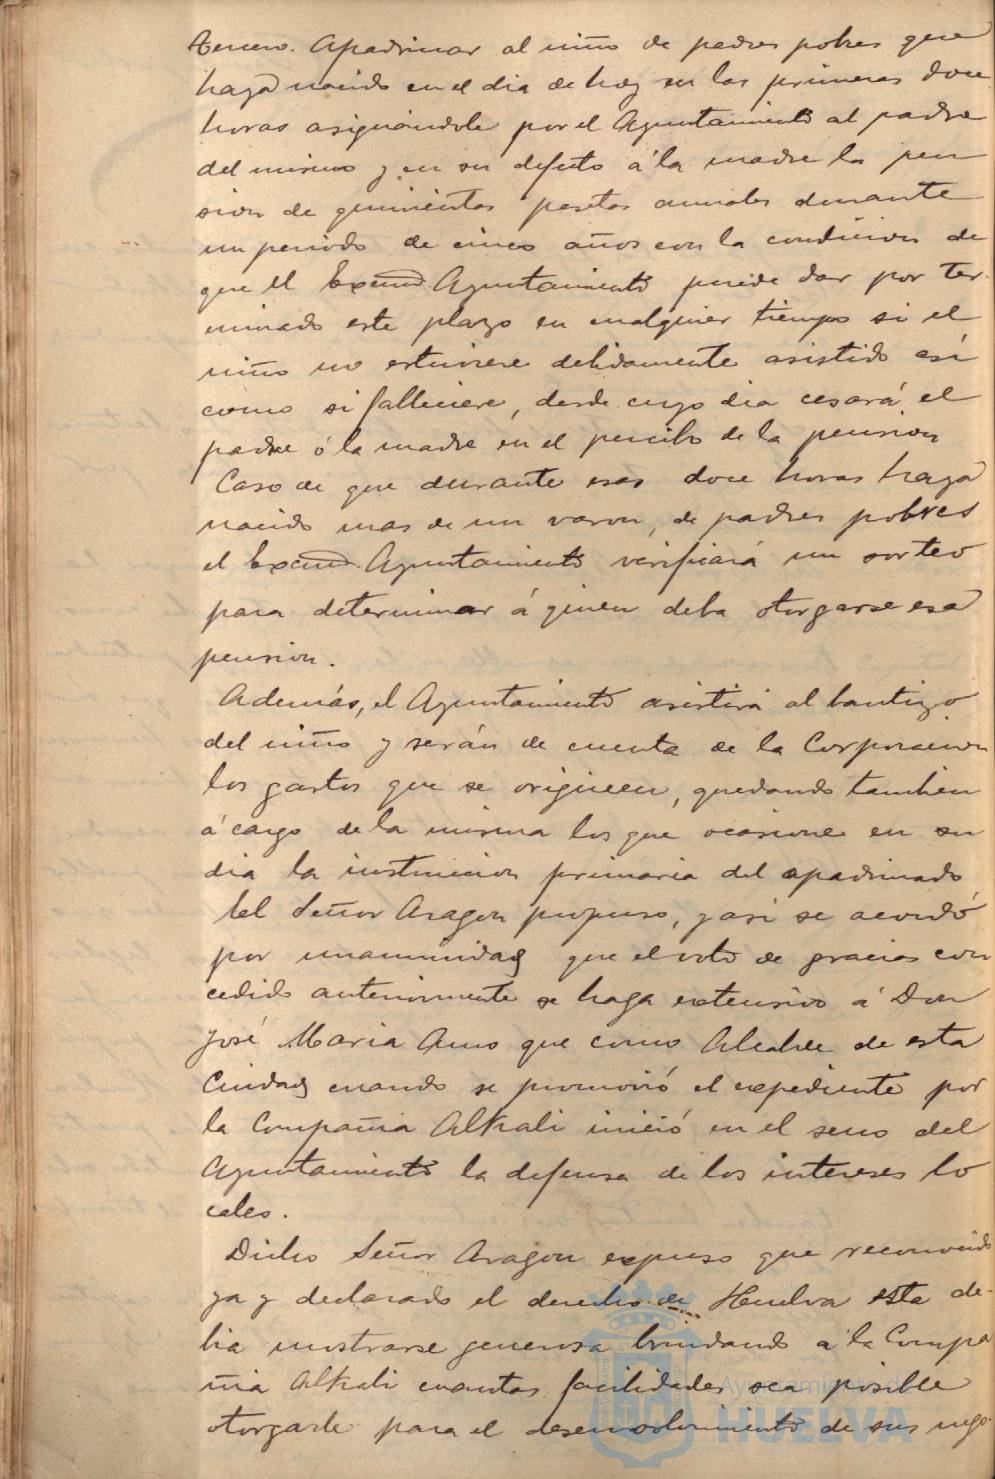 tercero. Apadrinar al niño de padres pobres que
haya nacido en el dia de hoy en las primeras doce
horas asignándole por el Ayuntamiento al padre
del mismo y en su defecto á la madre la pen
sion de quinientas pesetas anuales durante
un periodo de cinco años con la condicion de
que el Excmo. Ayuntamiento puede dar por ter-
minado este plazo en cualquier tiempo si el
niño no estuviere debidamente asistido así
como si falleciere, desde cuyo dia cesará el
padre ó la madre en el percibo de la pension
Caso de que durante esas doce horas haya
nacido mas de un varon, de padres pobres
el Excmo. Ayuntamiento verificará un sorteo
para determinar á quien deba otorgarse esa
pension.
Además, el Ayuntamiento asistirá al bautizo
del niño y serán de cuenta de la Corporacion
los gastos que se originen, quedando tambien
á cargo de la misma los que ocasione en su
dia la instruccion primaria del apadrinado
El Señor Aragon propuso, y asi se acordó
por unanimidad que el voto de gracias con
cedido anteriormente se haga extensivo á Don
José Maria Amo que como Alcalde de esta
Ciudad cuando se promovió el expediente por
la Compañia Alkali inició en el seno del
Ayuntamiento la defensa de los intereses lo
cales.
Dicho Señor Aragon expuso que reconocido
ya y declarado el derecho de Huelva esta de-
bia mostrarse generosa brindando á la Compa
ñia Alkali cuantas facilidades sea posible
otorgarle para el desenvolvimiento de sus nego
Ayuntamiento de
HUELVA